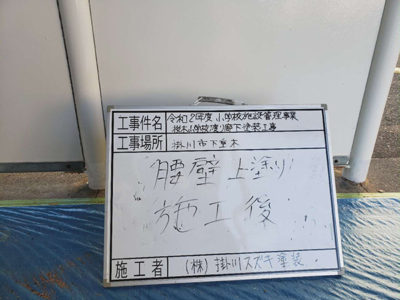 工事件名 令和2年度 小学校施設管理事業
桜木小学校渡り廊下塗装工事
工事場所 掛川市下垂木
腰壁上塗り
施工後
施工者 (株)掛川スズキ塗装